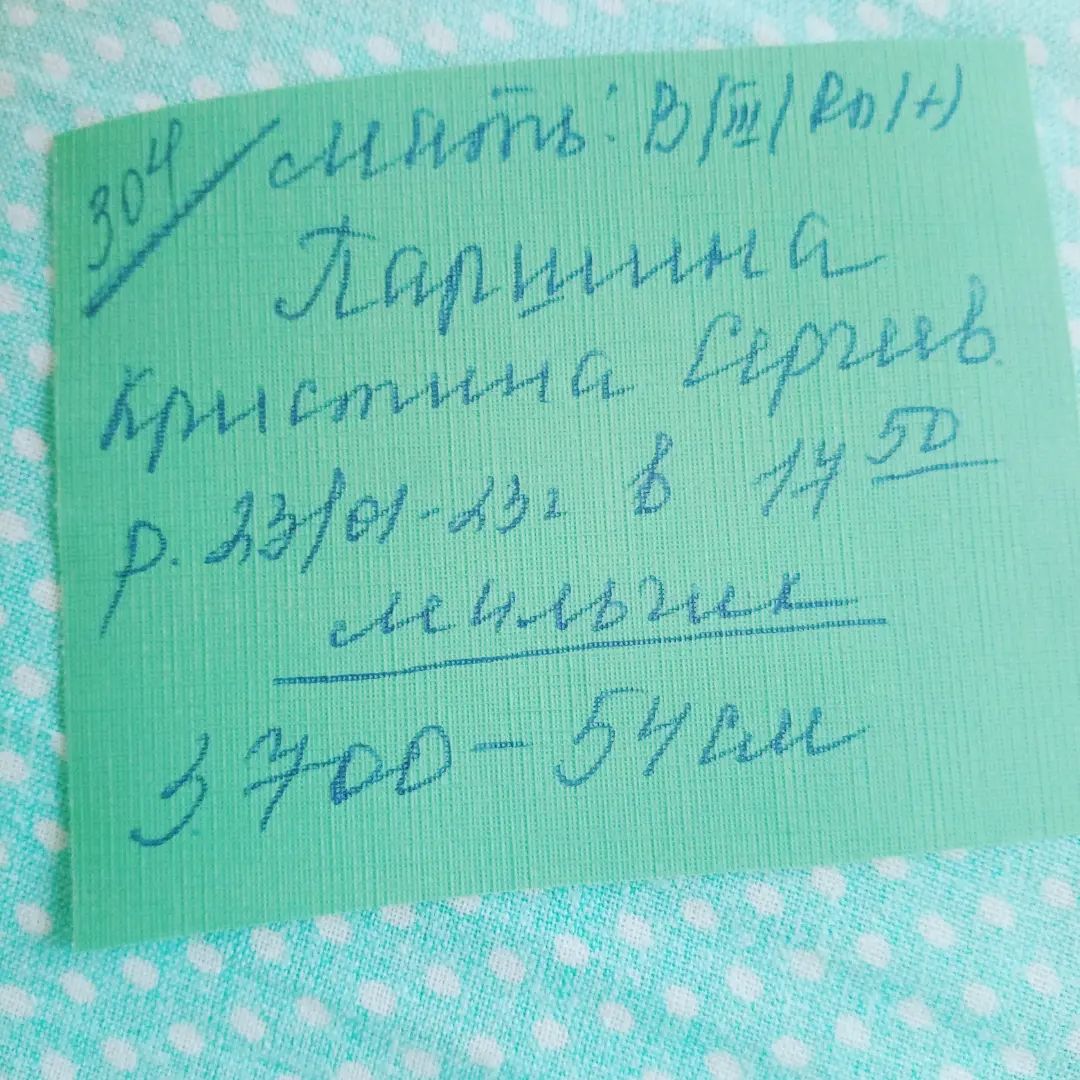 304 мать: В(III) Rh(+)
Паршина
Кристина Сергеев.
р. 23/01-23г в 14 50
мальчик
3700 - 54 см